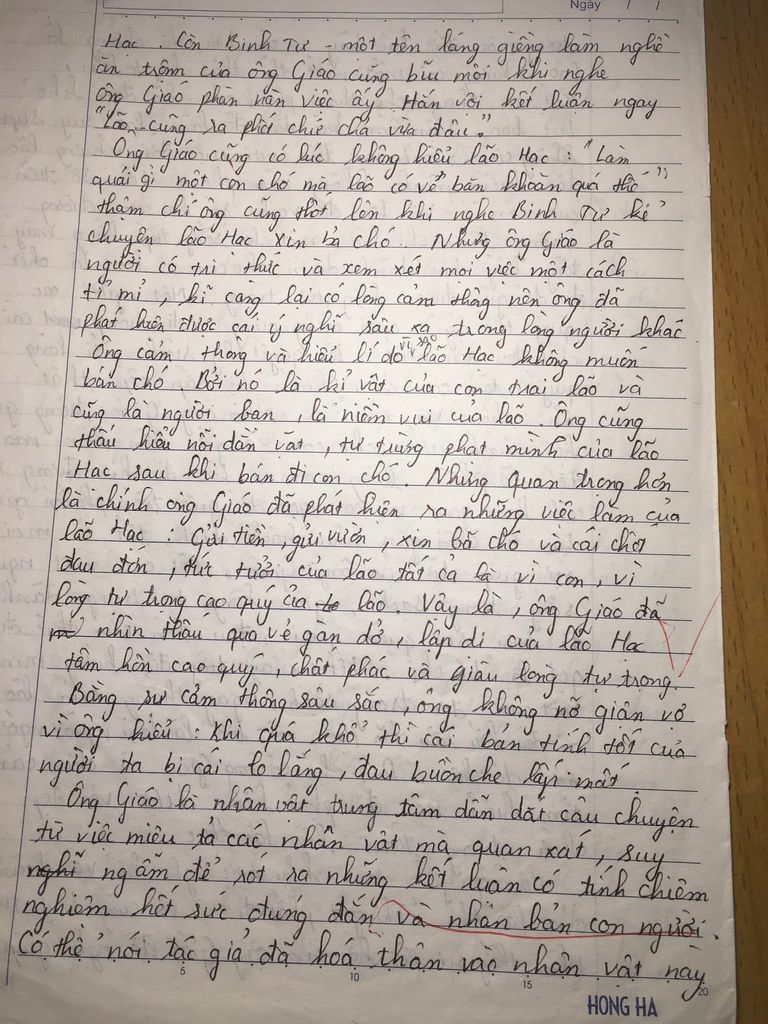 Ngày / /
Hạc. Còn Binh Tư - một tên láng giềng làm nghề
ăn trộm của ông Giáo cũng bĩu môi khi nghe
ông Giáo phàn nàn việc ấy. Hắn vội kết luận ngay
"Lão cũng ra phết chứ chả vừa đâu."
Ông Giáo cũng có lúc không hiểu lão Hạc: "Làm
quái gì một con chó mà lão có vẻ băn khoăn quá thế"
thậm chí ông cũng thốt lên khi nghe Binh Tư kể
chuyện lão Hạc xin bả chó. Nhưng ông Giáo là
người có tri thức và xem xét mọi việc một cách
tỉ mỉ, kĩ càng lại có lòng cảm thông nên ông đã
phát hiện được cái ý nghĩ sâu xa trong lòng người khác
Ông cảm thông và hiểu lí do vì sao lão Hạc không muốn
bán chó. Bởi nó là kỉ vật của con trai lão và
cũng là người bạn, là niềm vui của lão. Ông cũng
thấu hiểu nỗi dằn vặt, tự trừng phạt mình của lão
Hạc sau khi bán đi con chó. Nhưng quan trọng hơn
là chính ông Giáo đã phát hiện ra những việc làm của
lão Hạc: Gửi tiền, gửi vườn, xin bã chó và cái chết
đau đớn, tức tưởi của lão tất cả là vì con, vì
lòng tự trọng cao quý của lão. Vậy là, ông Giáo đã
nhìn thấu qua vẻ gàn dở, lập dị của lão Hạc
tâm hồn cao quý, chất phác và giàu lòng tự trọng.
Bằng sự cảm thông sâu sắc, ông không nỡ giận vợ
vì ông hiểu: Khi quá khổ thì cái bản tính tốt của
người ta bị cái lo lắng, đau buồn che lấp mất.
Ông Giáo là nhân vật trung tâm dẫn dắt câu chuyện
từ việc miêu tả các nhân vật mà quan xát, suy
nghĩ ngẫm để rót ra những kết luận có tính chiêm
nghiệm hết sức đúng đắn và nhân bản con người.
Có thể nói tác giả đã hoá thân vào nhân vật này
5 10 15 20
HONG HA